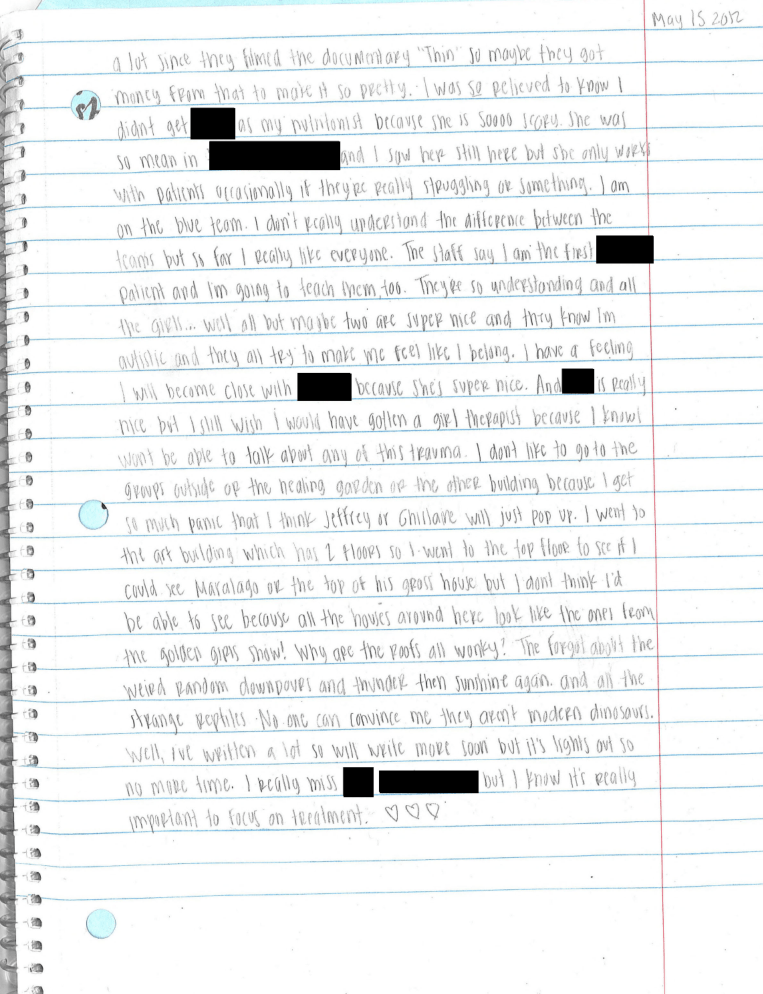 May 15 2012
a lot since they filmed the documentary "Thin" so maybe they got
money from that to make it so pretty. I was so relieved to know I
didnt get as my nutritionist because she is soooo scary. She was
so mean in and I saw her still here but she only works
with patients occasionally if they're really struggling or something. I am
on the blue team. I don't really understand the difference between the
teams but so far I really like everyone. The staff say I am the first
patient and I'm going to teach them, too. They're so understanding and all
the girls... well all but maybe two are super nice and they know I'm
autistic and they all try to make me feel like I belong. I have a feeling
I will become close with because she's super nice. And is really
nice but I still wish I would have gotten a girl therapist because I know I
wont be able to talk about any of this trauma. I dont like to go to the
groups outside or the healing garden or the other building because I get
so much panic that I think Jeffrey or Ghillaine will just pop up. I went to
the art building which has 2 floors so I went to the top floor to see if I
could see Maralago or the top of his gross house but I dont think I'd
be able to see because all the houses around here look like the ones from
the golden girls show! Why are the roofs all wonky? The forgot about the
weird random downpours and thunder then sunshine again. and all the
strange reptiles. No one can convince me they arent modern dinosaurs.
Well, i've written a lot so will write more soon but it's lights out so
no more time. I really miss but I know it's really
important to focus on treatment. ♡♡♡